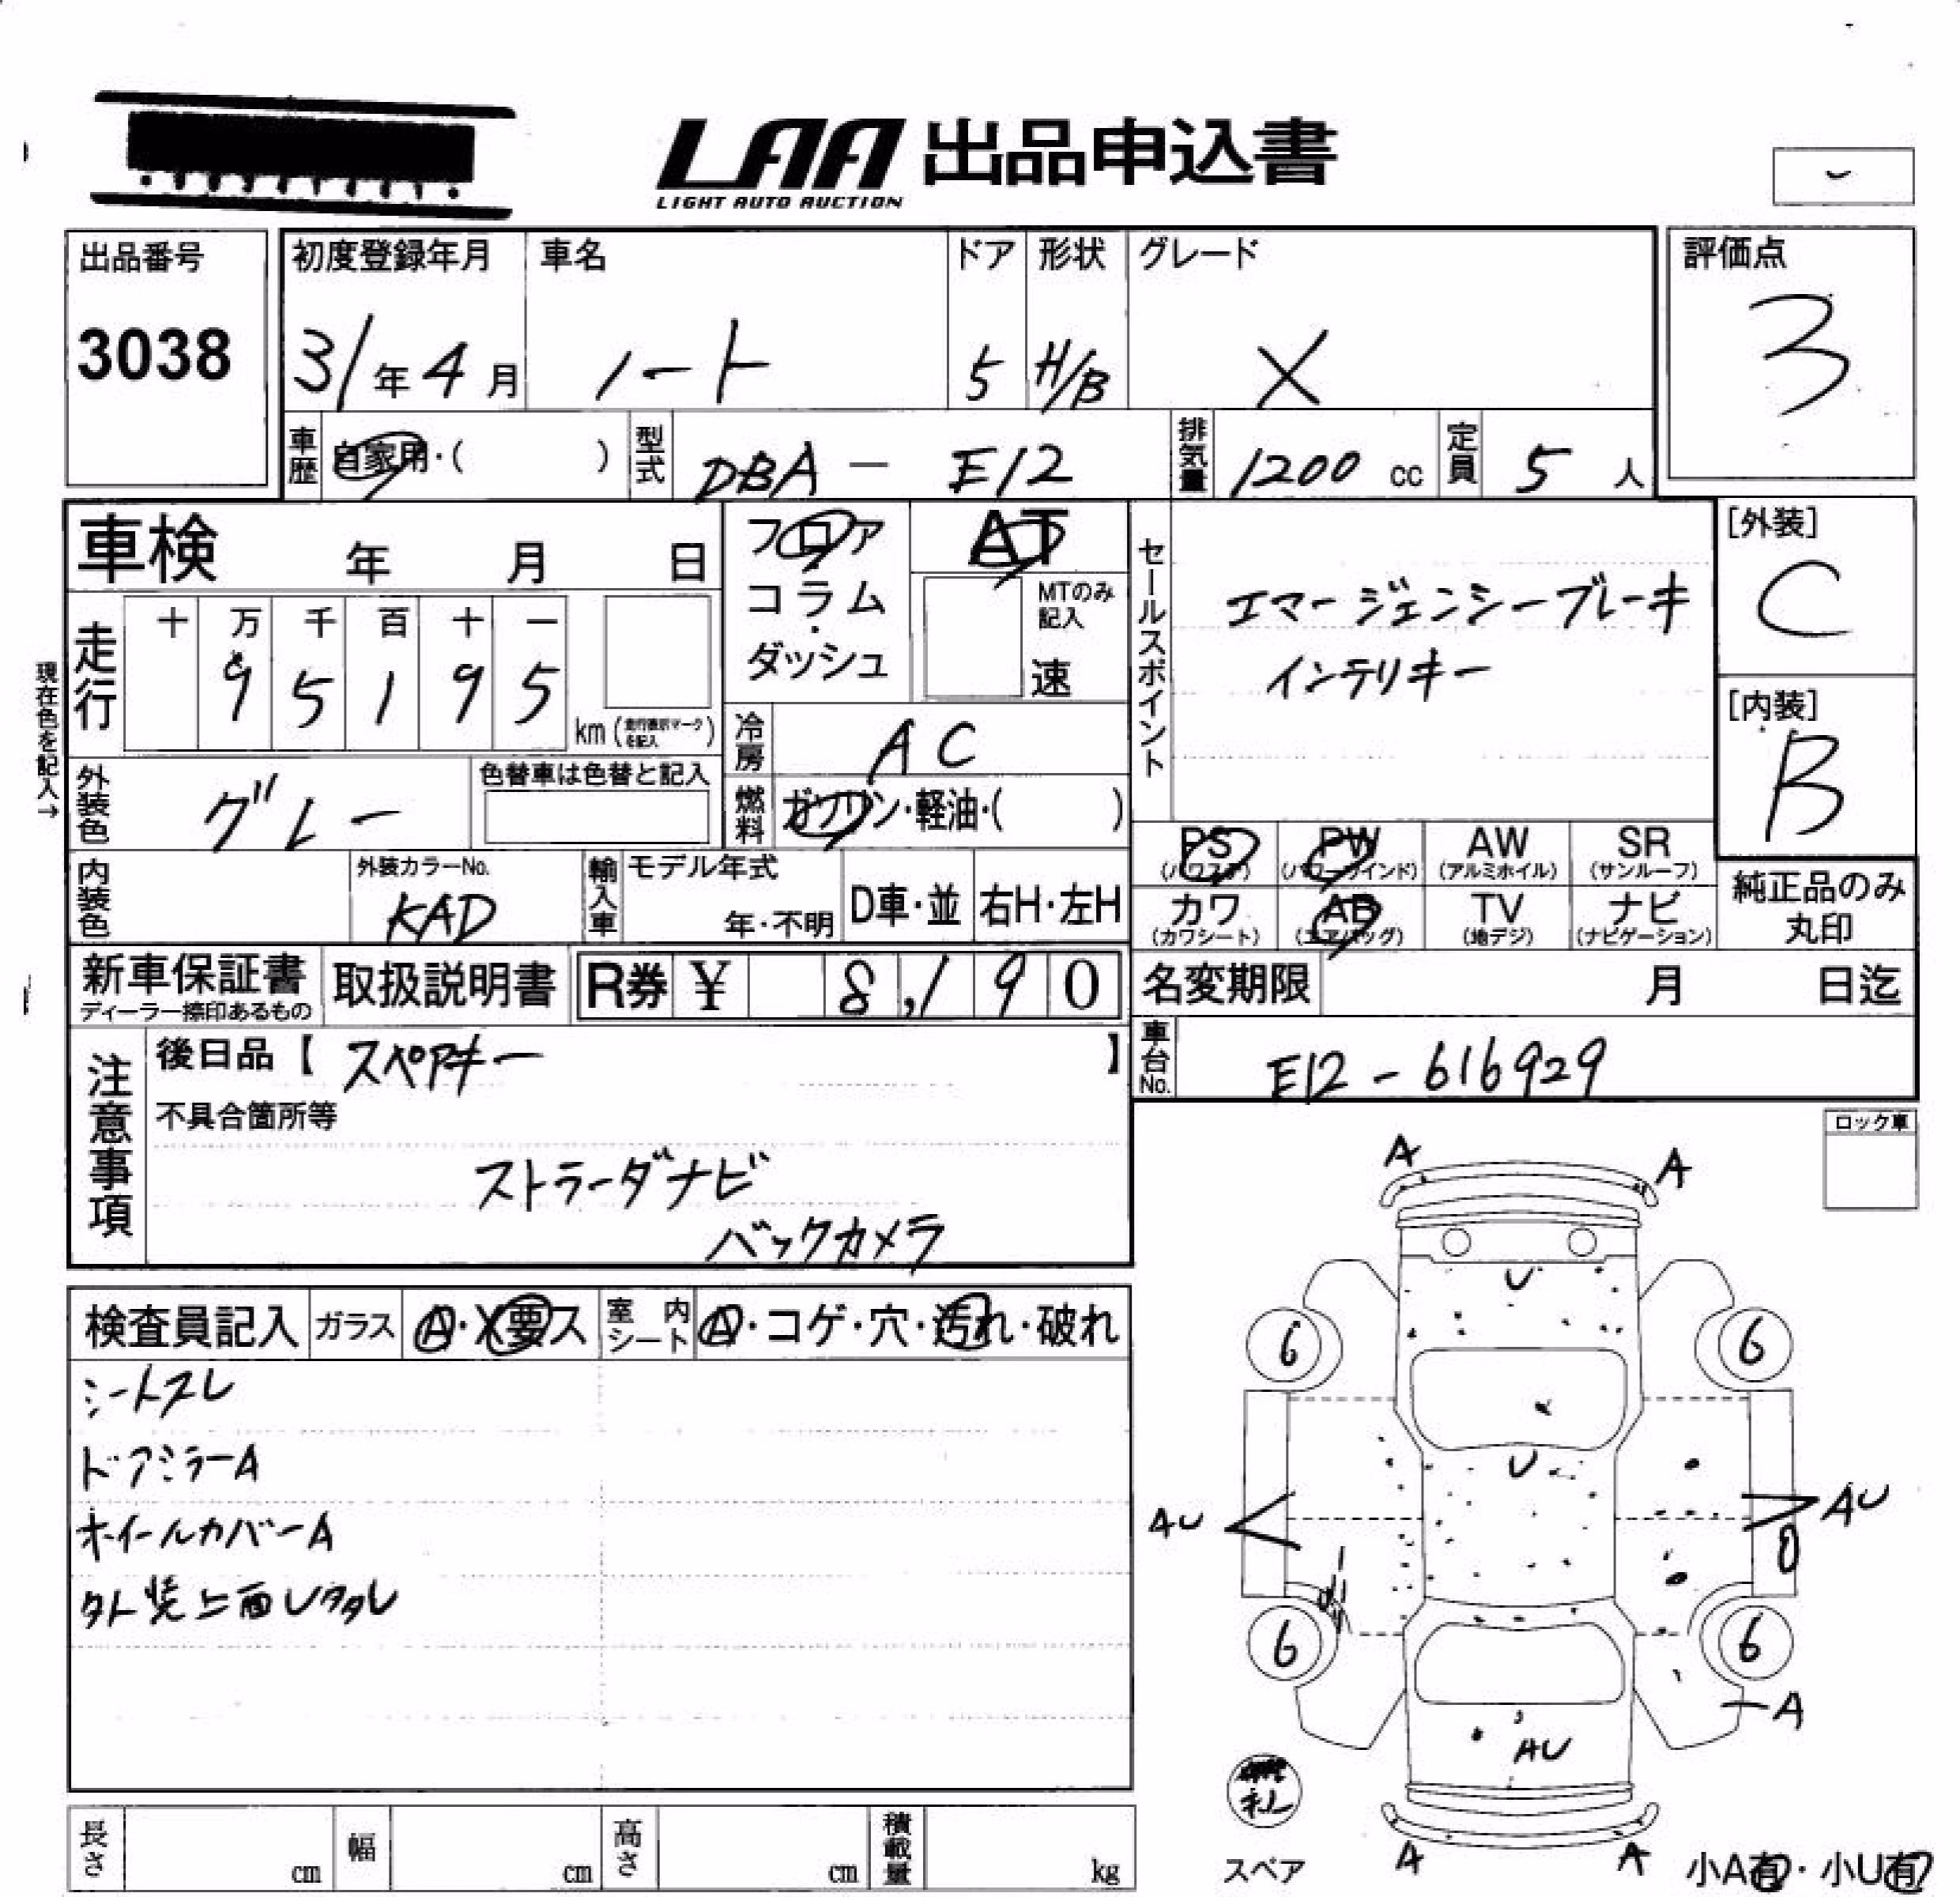 LAA 出品申込書
LIGHT AUTO AUCTION
出品番号
3038
初度登録年月
31年4月
車名
ノート
ドア
5
形状
H/B
グレード
X
評価点
3
車歴 自家用・( )
型式 DBA － E12
排気量 1200 cc
定員 5 人
車検 年 月 日
フロア
コラム
・
ダッシュ
AT
MTのみ
記入
速
セールスポイント
エマージェンシーブレーキ
インテリキー
[外装]
C
[内装]
B
現在色を記入→
走行
十 万 千 百 十 一
9 5 1 9 5
km (走行表示マークを記入)
冷房 AC
外装色 グレー
色替車は色替と記入
燃料 ガソリン・軽油・( )
PS (パワステ)
PW (パワーウインド)
AW (アルミホイル)
SR (サンルーフ)
カワ (カワシート)
AB (エアバッグ)
TV (地デジ)
ナビ (ナビゲーション)
純正品のみ
丸印
内装色
外装カラーNo.
KAD
輸入車
モデル年式
年・不明
D車・並
右H・左H
新車保証書
ディーラー捺印あるもの
取扱説明書
R券 ¥ 8,190
名変期限 月 日迄
車台No. E12-616929
注意事項
後日品【 スペアキー 】
不具合箇所等
ストラーダナビ
バックカメラ
ロック車
検査員記入
ガラス A・X要ス
室内シート A・コゲ・穴・汚れ・破れ
シートスレ
ドアミラーA
ホイールカバーA
外装上面Uタタレ
A A
U
6 6
U
AU AU
6 6
A
AU
スペア
A A
小A有・小U有
長さ cm
幅 cm
高さ cm
積載量 kg